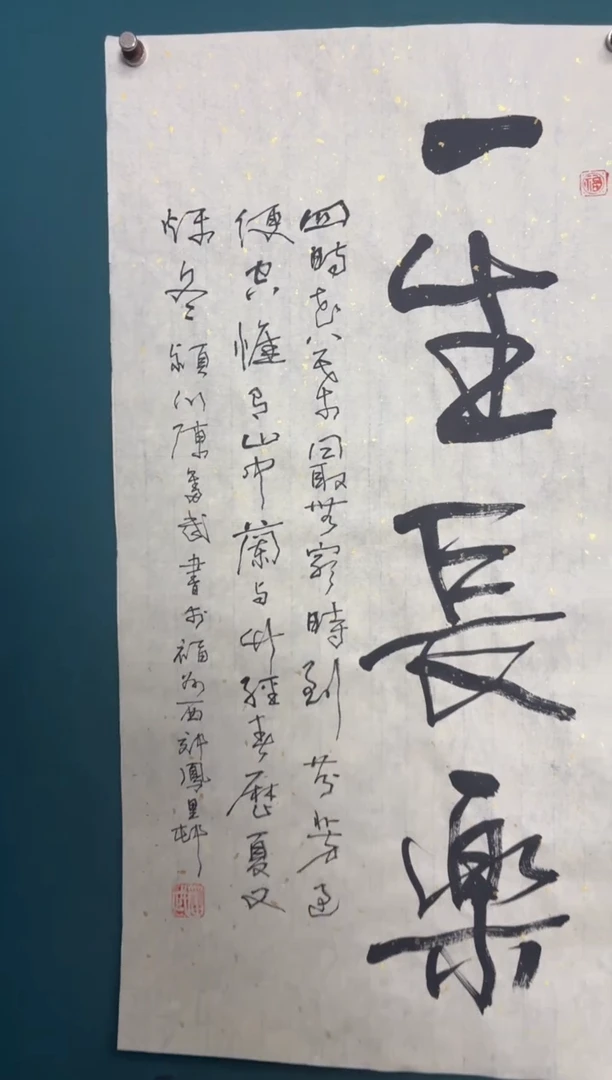 一生長樂
四時花草最無窮時到芬芳過
便空惟有山中蘭與竹經春歷夏又
秋冬 潁川陳奮武書於福州西鳳里邨
福